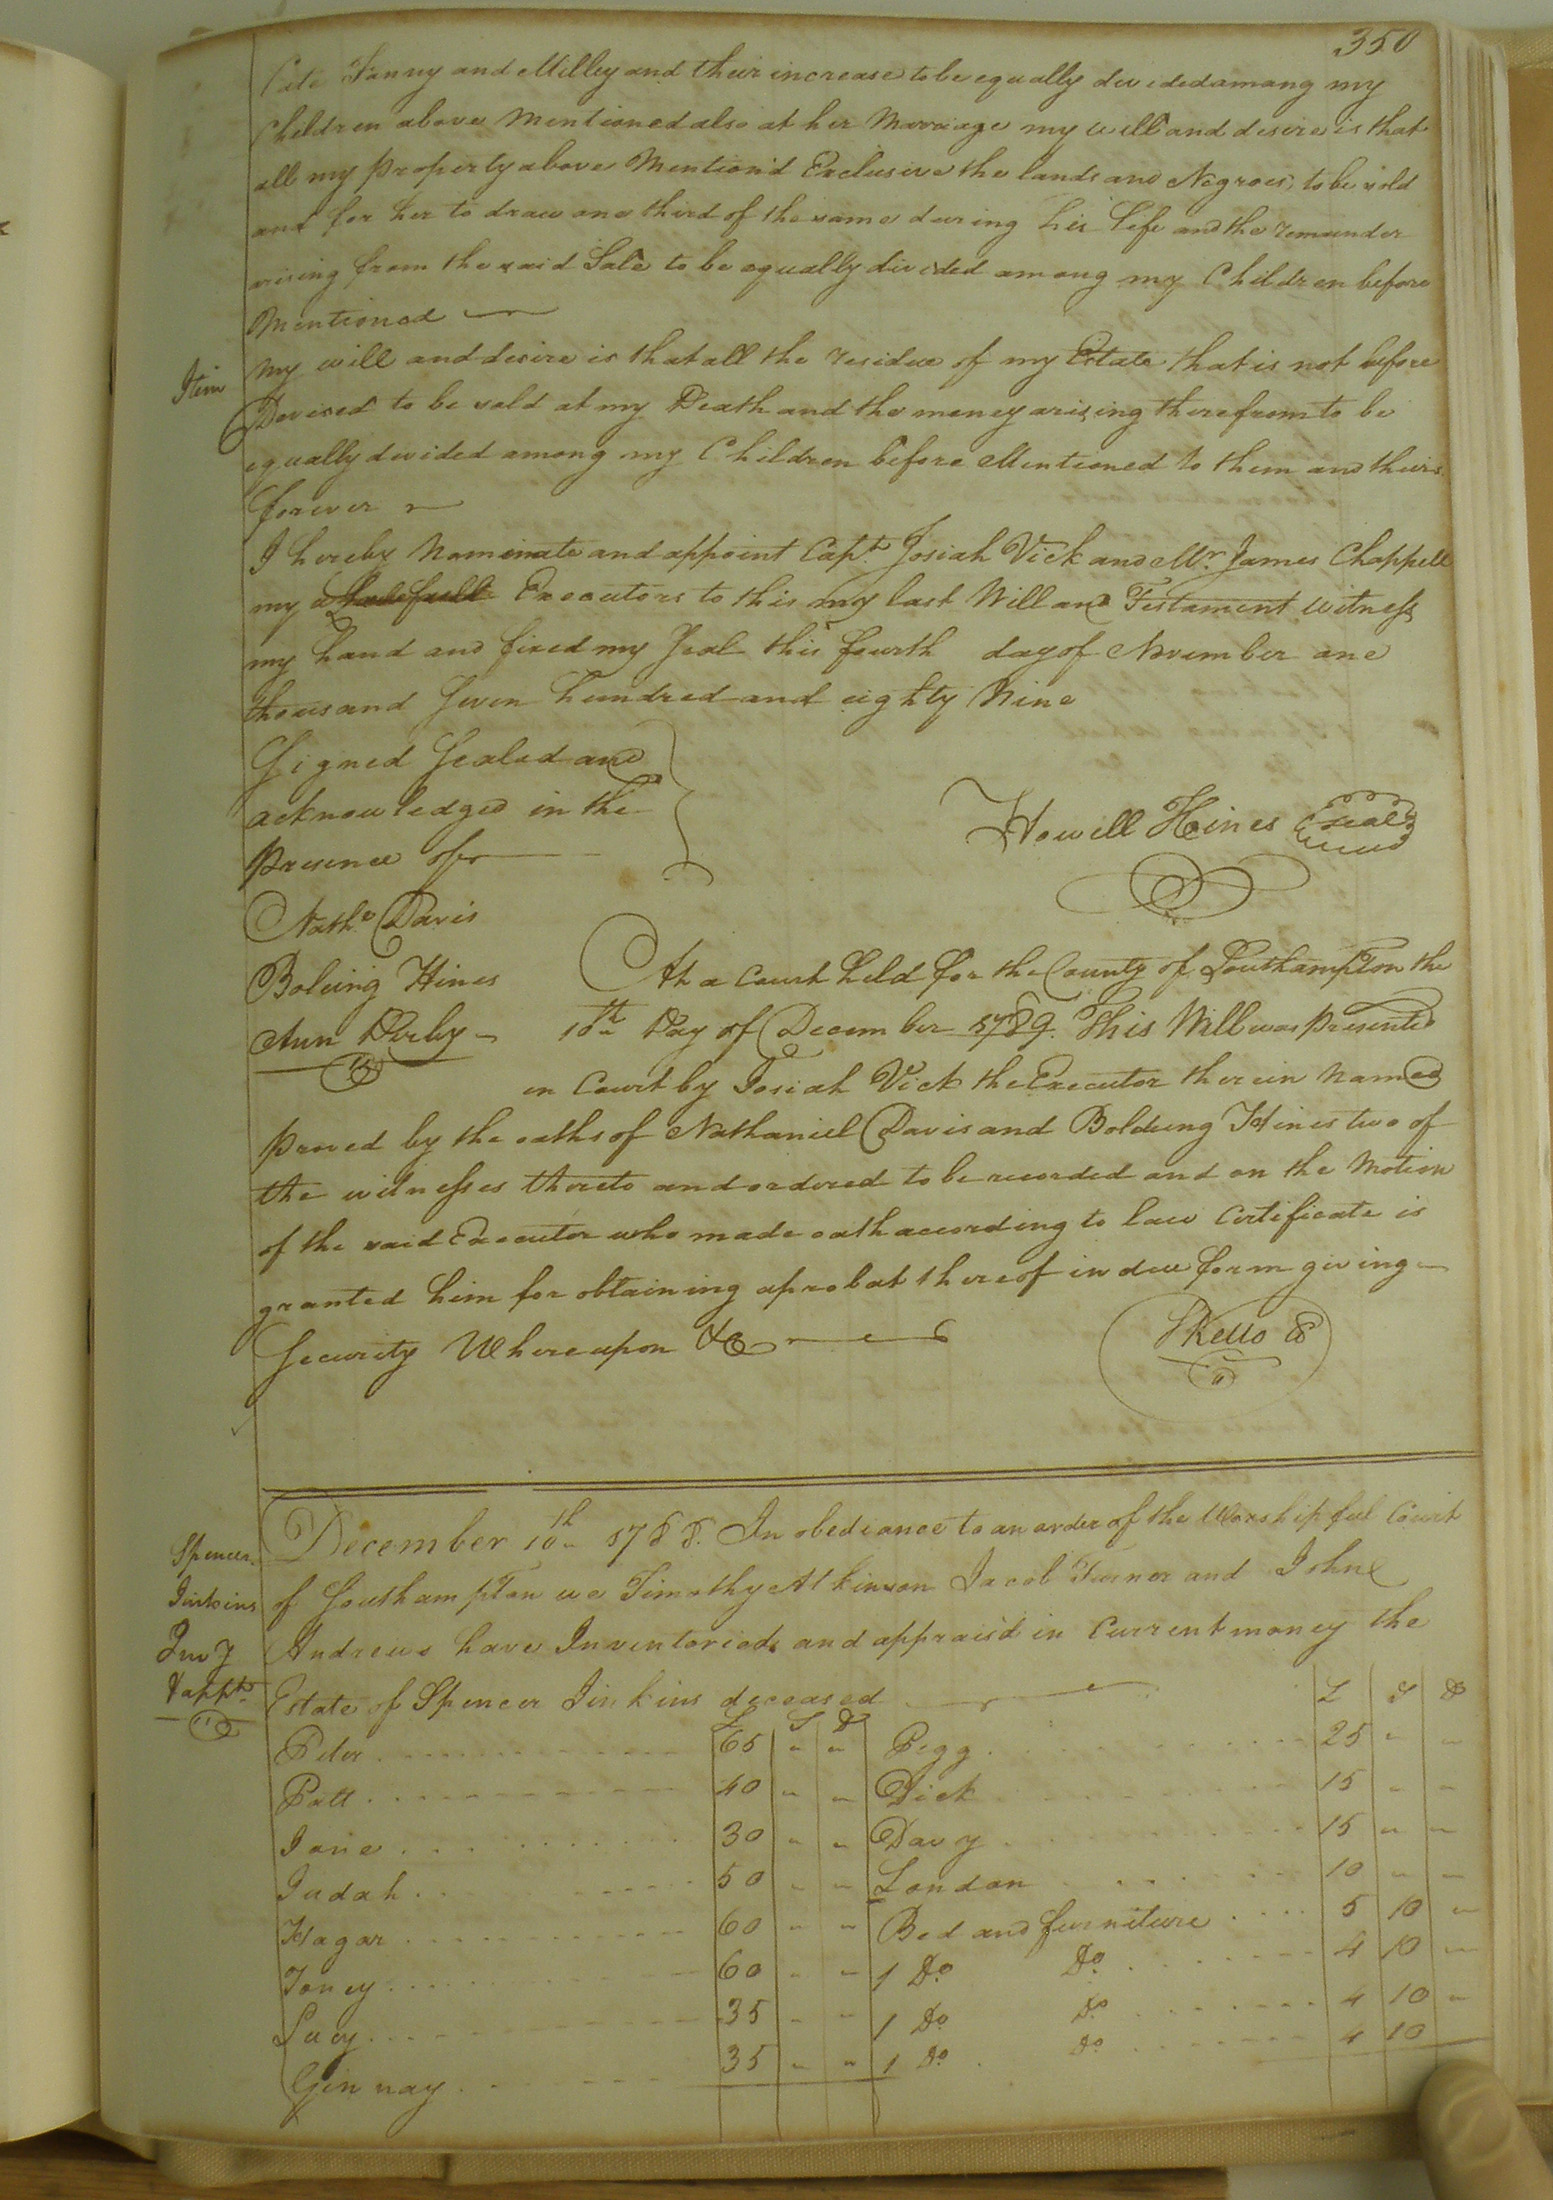 350
Cate Fanny and Milley and their increase to be equally devided amang my
Children above Mentioned also at her Marriage my will and desire is that
all my Property above Mention'd Exclusive the lands and Negroes, to be sold
and for her to draw one third of the same during her Life and the remainder
arising from the said Sale to be equally divided among my Children before
Mentioned
Item My will and desire is that all the residue of my Estate that is not before
Devised to be sold at my Death and the money arising therefrom to be
equally devided among my Children before Mentioned to them and theirs
forever
I hereby Nominate and appoint Capt. Josiah Vick and Mr. James Chappell
my Executors to this my last Will and Testament witness
my hand and fixed my Seal this fourth day of November one
thousand Seven hundred and eighty Nine
Signed Sealed and
acknowledged in the
Presence of
Howell Hines Seal
Nathl Davis
Bolding Hines
Ann Derby
At a Court held for the County of Southampton the
10th Day of December 1789. This Will was Presented
in Court by Josiah Vick the Executor therein Named
Proved by the oaths of Nathaniel Davis and Boldung Hines two of
the witnesses thereto and ordered to be recorded and on the Motion
of the said Executor who made oath according to law Certificate is
granted him for obtaining a probat thereof in due form giving
Security Whereupon &c
S Kello C
Spencer
Jinkins
Inv y
& appt
December 10th 1788. In obediance to an order of the Worshipful Court
of Southampton we Timothy Atkinson Jacob Turner and John
Andrews have Inventoried, and apprais'd in Current money the
Estate of Spencer Jinkins deceased
£ S D £ S D
Peter 65 " " Pegg 25 " "
Patt 40 " " Dick 15 " "
Jane 30 " " Davy 15 " "
Judah 50 " " London 10 " "
Hagar 60 " " Bed and furniture 5 10 "
Toney 60 " " 1 Do Do 4 10 "
Lucy 35 " " 1 Do Do 4 10 "
Ginnay 35 " " 1 Do Do 4 10